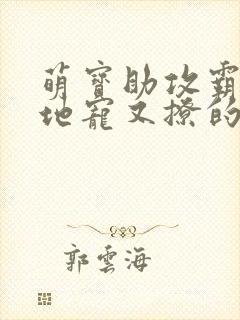 萌寳助攻霸
地寵又撩的
郭雲海